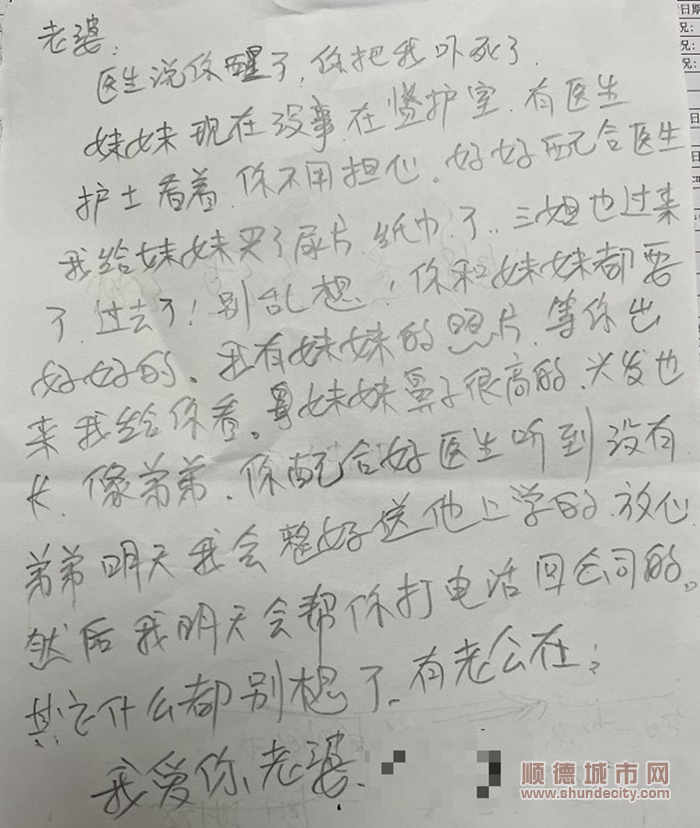 老婆:
医生说你醒了,你把我吓死了.
妹妹现在没事.在监护室.有医生
护士看着.你不用担心.好好配合医生
我给妹妹买了尿片.纸巾了..三姐也过来
了.过去了!别乱想!你和妹妹都要
好好的、我有妹妹的照片.等你出
来我给你看。妹妹鼻子很高的.头发也
长.像弟弟.你配合好医生听到没有
弟弟明天我会整好送他上学的.放心
然后我明天会帮你打电话回公司的。
其它什么都别想了、有老公在;
我爱你、老婆.
日期
况:
况:
顺德城市网
www.shundecity.com